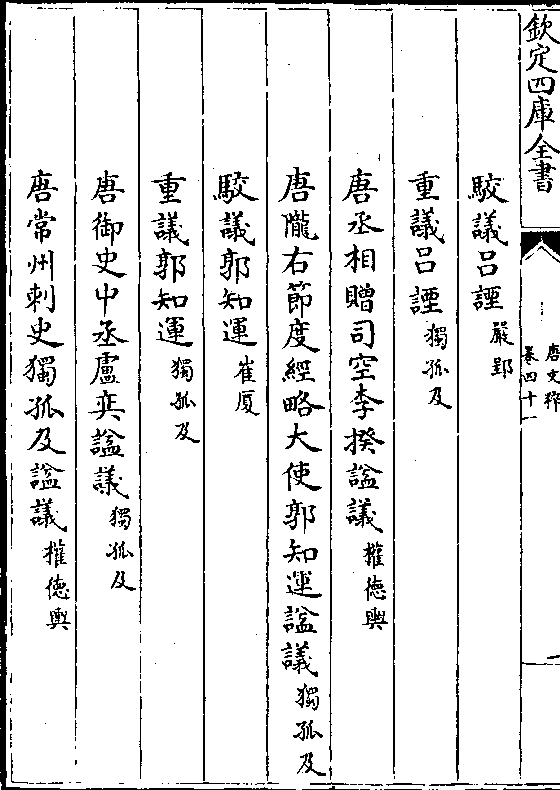 欽定四庫全書
唐文粹
卷四十一
駮議呂諲 嚴郢
重議呂諲 獨孤及
唐丞相贈司空李揆諡議 權德輿
唐隴右節度經略大使郭知運諡議 獨孤及
駮議郭知運 崔厦
重議郭知運 獨孤及
唐御史中丞盧奕諡議 獨孤及
唐常州刺史獨孤及諡議 權德輿